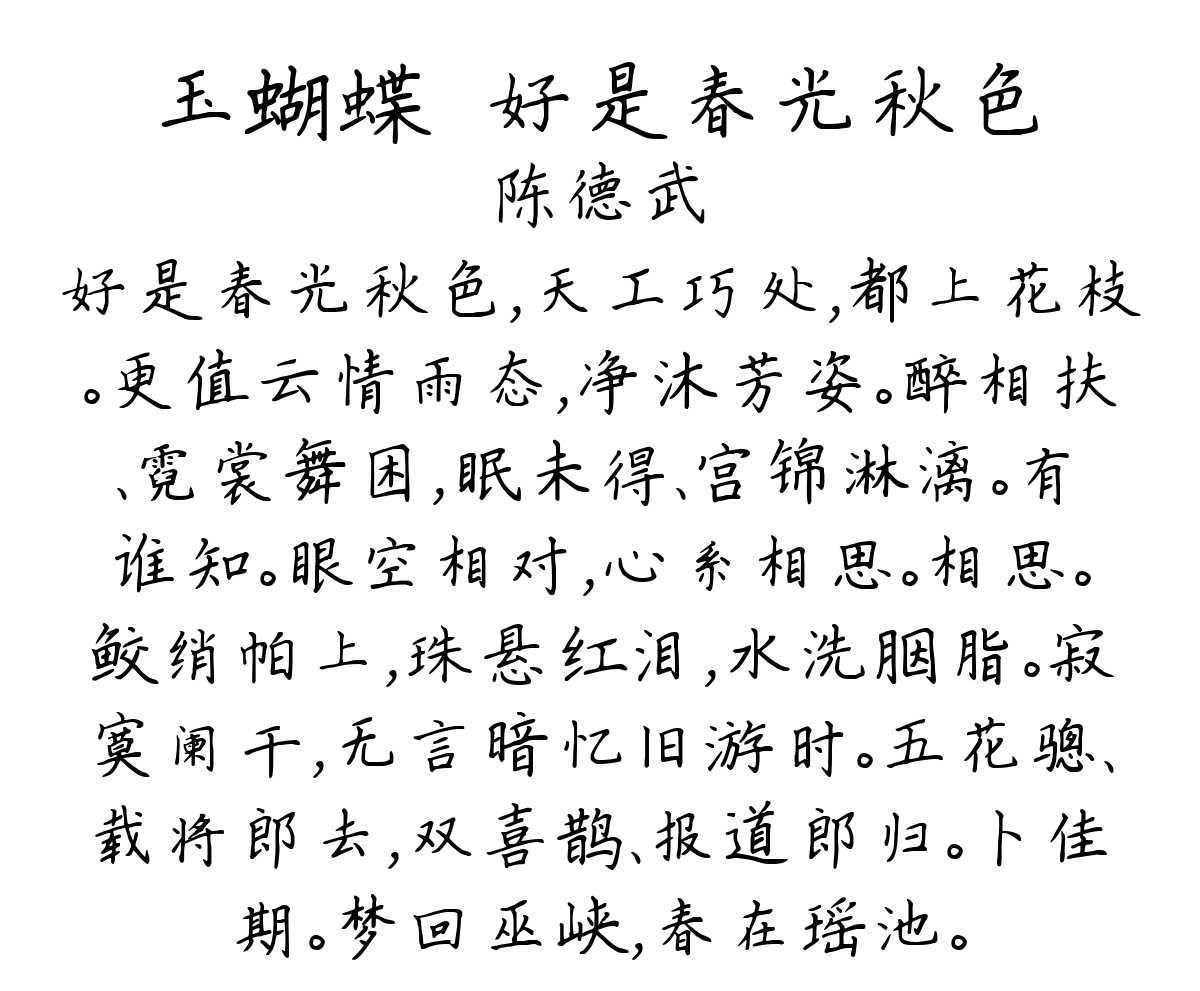 玉蝴蝶 好是春光秋色
陈德武
好是春光秋色,天工巧处,都上花枝
。更值云情雨态,净沐芳姿。醉相扶
、霓裳舞困,眠未得、宫锦淋漓。有
谁知。眼空相对,心系相思。相思。
鲛绡帕上,珠悬红泪,水洗胭脂。寂
寞阑干,无言暗忆旧游时。五花骢、
载将郎去,双喜鹊、报道郎归。卜佳
期。梦回巫峡,春在瑶池。